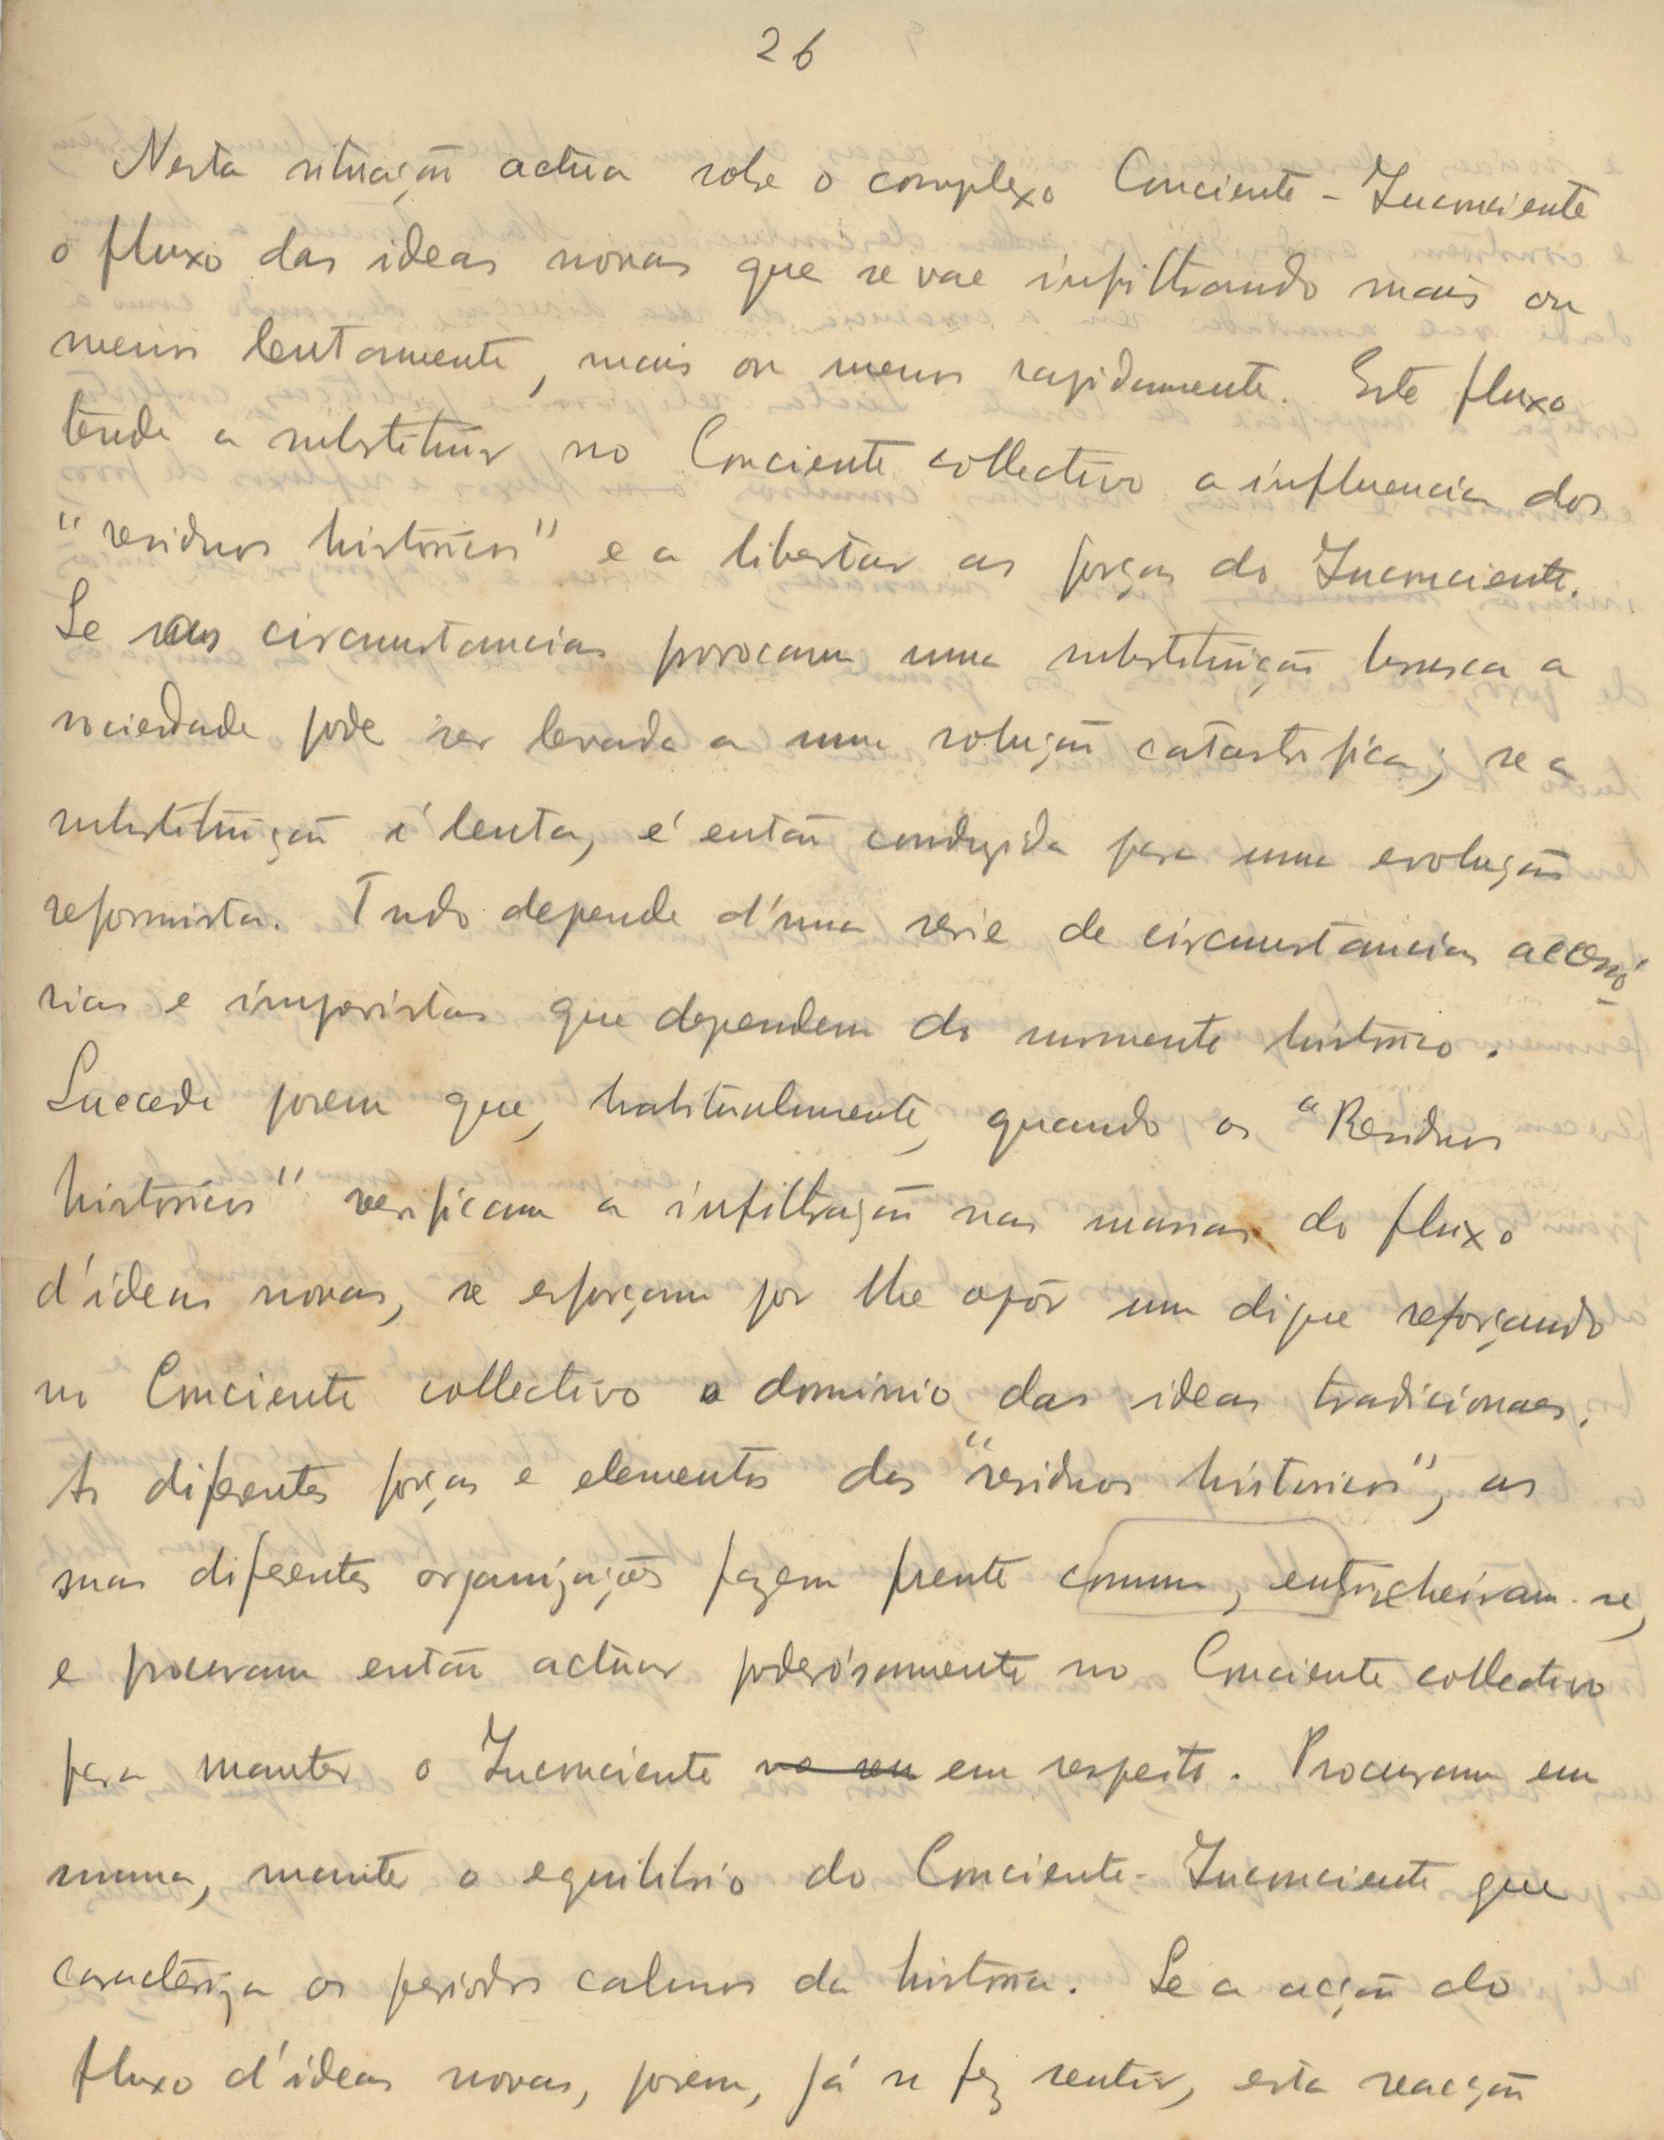 26
Nesta situação actua sobe o complexo Conciente - Inconciente
o fluxo das ideas novas que se vae infiltrando mais ou
menos lentamente, mais ou menos rapidamente. Este fluxo
tende a substituir no Conciente collectivo a influencia dos
"residuos historicos" e a libertar as forças do Inconciente.
Se as circumstancias provocam uma substituição brusca a
sociedade pode ser levada a uma solução catastrofica; se a
substituição é lenta, é então conduzida para uma evolução
reformista. Tudo depende d'uma serie de circumstancias acessó-
rias e imprevistas que dependem do momento historico.
Succede porem que, habitualmente, quando os "Residuos
historicos" verificam a infiltração nas massas do fluxo
d'ideas novas, se esforçam por lhe opôr um dique reforçando
no Conciente collectivo o dominio das ideas tradicionaes.
As diferentes forças e elementos dos "residuos historicos", as
suas diferentes organizações fazem frente comum, entrincheiram-se,
e procuram então actuar poderósamente no Conciente collectivo
para manter o Inconciente no seu em respeito. Procuram em
suma, manter o equilibrio do Conciente-Inconciente que
caracteriza os periodos calmos da historia. Se a acção do
fluxo d'ideas novas, porem, já se fez sentir, esta reacção